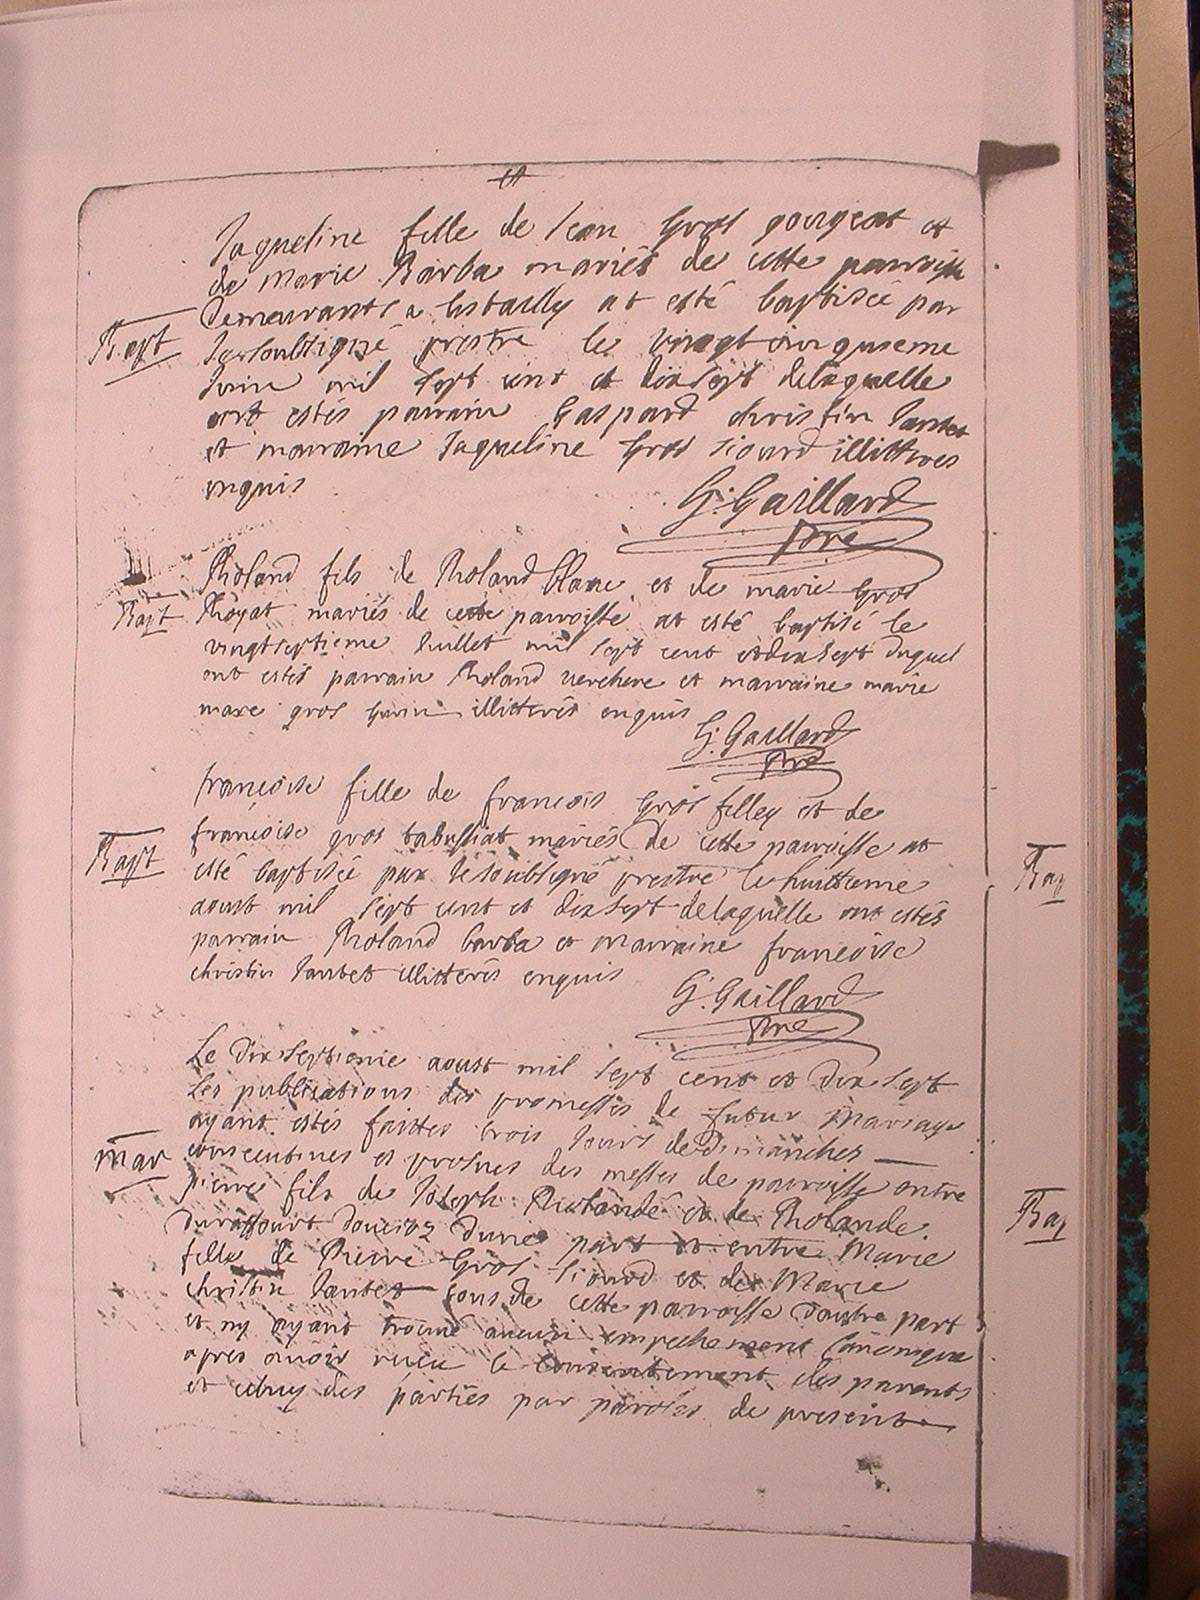 Jaqueline fille de Jean Gros gourgeat et
de Marie Barba mariés de cette parroisse
Demeurants a lestailly at esté baptisée par
Bapt
Jesoubsigné prestre le vingt cinquieme
Juin mil sept cent et dix sept delaquelle
ont estés parrain Gaspard christin Jantet
et marraine Jaqueline Gros siourd illitteres
enquis
G. Gaillard
Pbre
Roland fils de Roland blanc et de marie Gros
Bapt
Royat mariés de cette parroisse at esté baptisé le
vingtseptieme Juillet mil sept cent et dix sept duquel
ont estés parrain Roland verchere et marraine marie
gros illitterés enquis
G. Gaillard
Pbre
francoise fille de francois Gros filley et de
francoise gros tabussiat mariés de cette parroisse at
Bapt
esté baptisée par Jesoubsigné prestre le huittieme
aoust mil sept cent et dix sept delaquelle ont estés
parrain Roland barba et marraine francoise
christin Jantet illitterés enquis
G. Gaillard
Pbre
Le dix septieme aoust mil sept cent et dix sept
Les publications des promesses de futur Mariage
ayant estés faittes trois Jours de dimanches
Mar
consecutives es prosnes des messes de parroisse entre
pierre fils de Joseph et de Rolande
Durafourt d'une part et entre Marie
fille de Pierre Gros siourd et de Marie
christin Jantet tous de cette parroisse d'autre part
et ny ayant trouvé aucun empechement canonique
apres avoir receu le consentement des parents
et celuy des parties par paroles de present
Bap
Bap